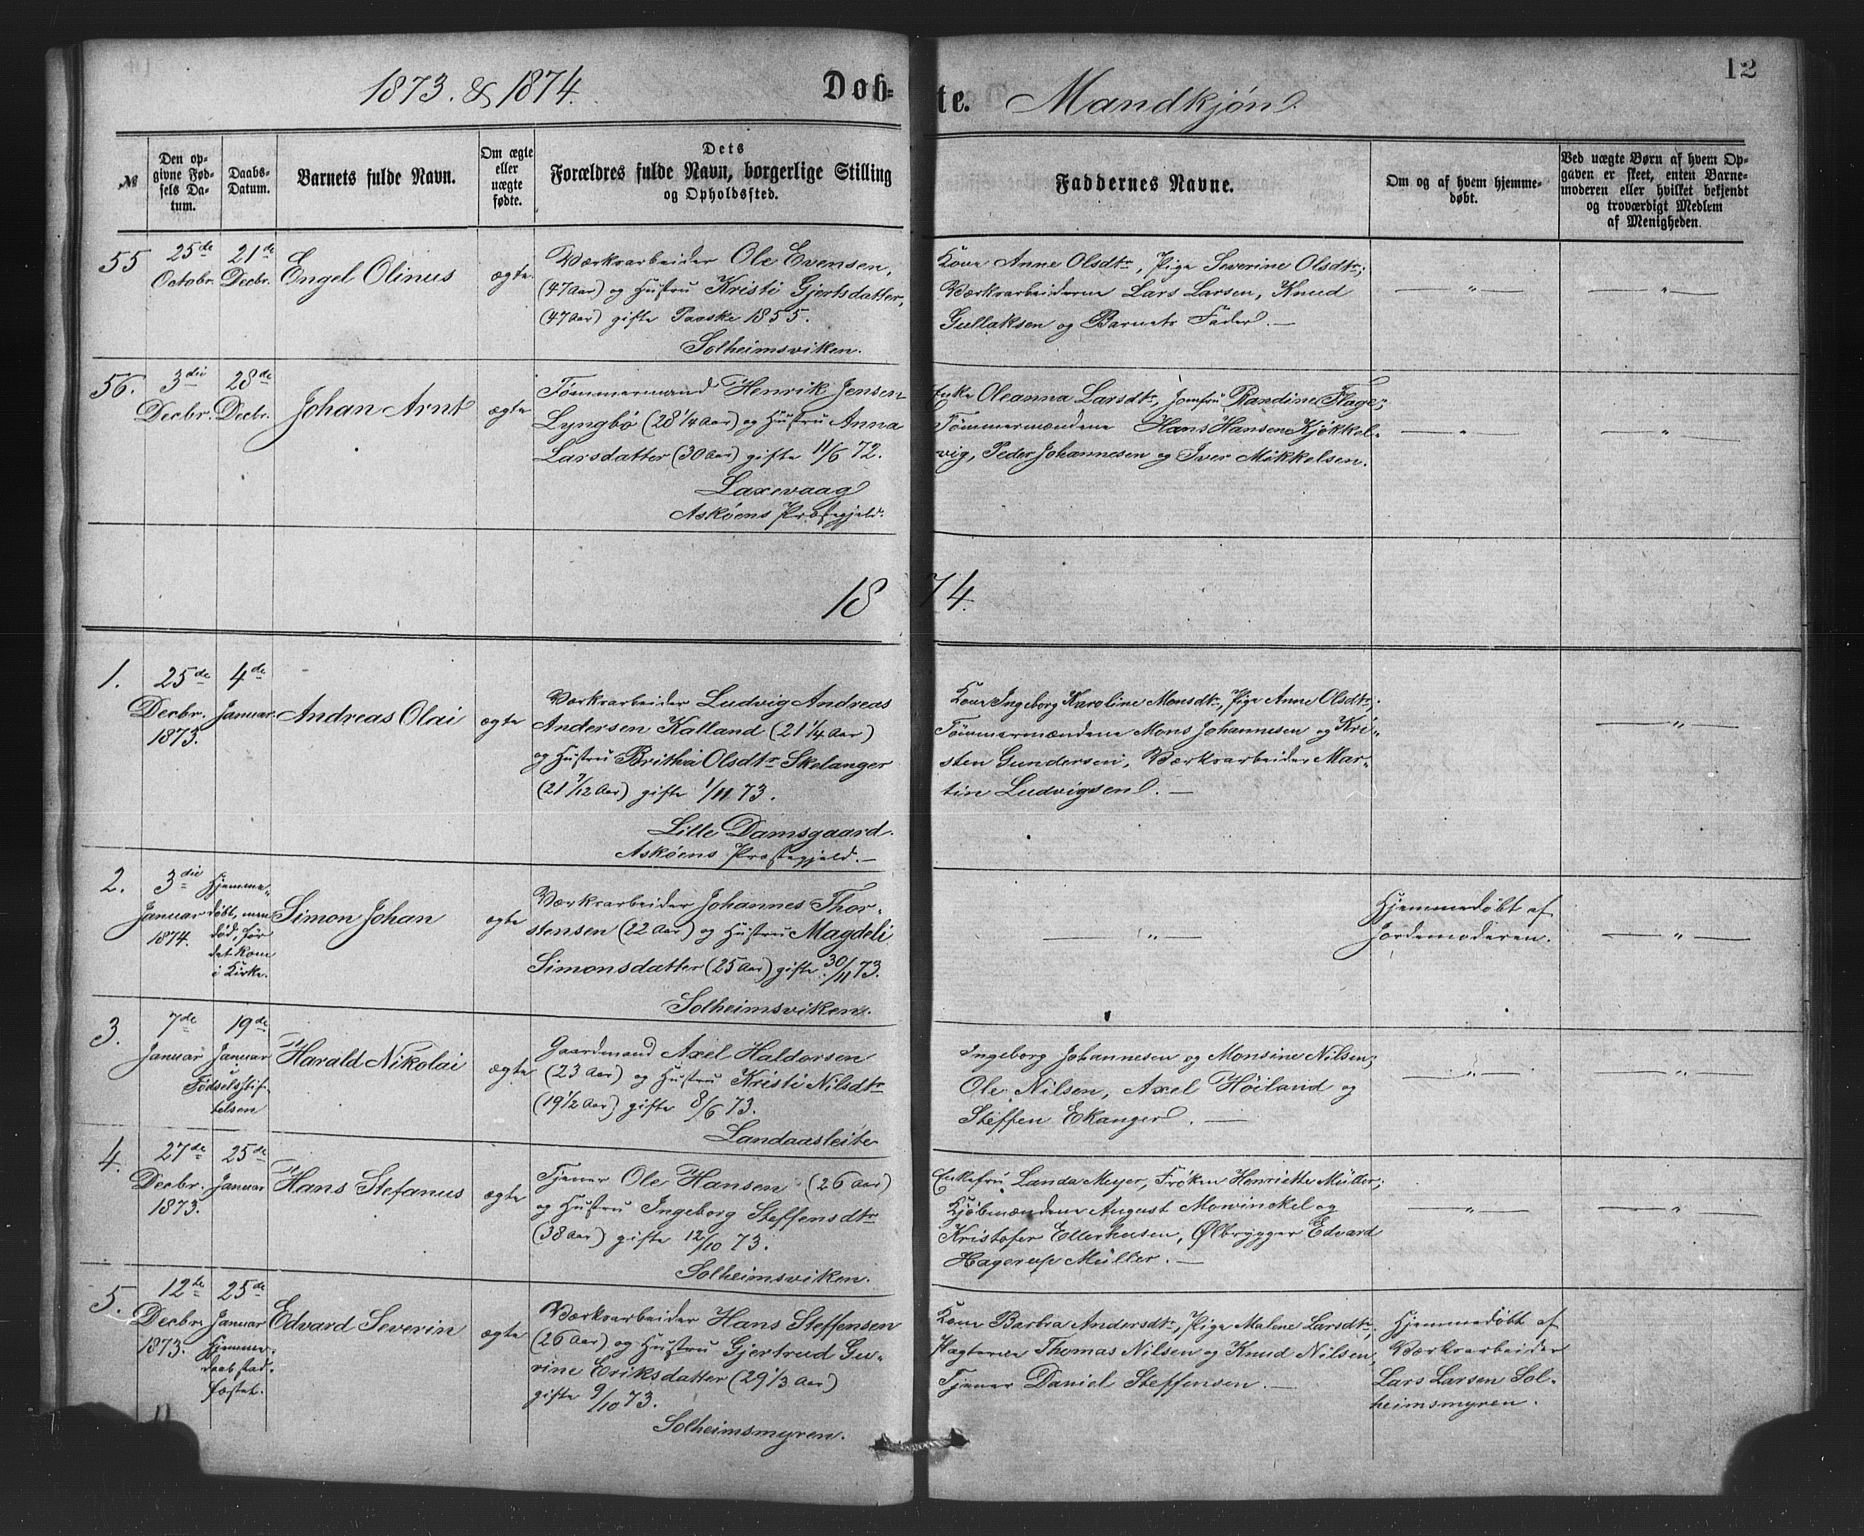 1873. & 1874.
Døb-te. Mandkjøn.
12
№
Den op-
givne Fød-
sels Da-
tum.
Daabs-
Datum.
Barnets fulde Navn.
Om ægte
eller
uægte
fødte.
Dets
Forældres fulde Navn, borgerlige Stilling
og Opholdssted.
Faddernes Navne.
Om og af hvem hjemme-
døbt.
Ved uægte Børn af hvem Op-
gaven er skeet, enten Barne-
moderen eller hvilket bekjendt
og troværdigt Medlem
af Menigheden.
55
25de
Octobr.
21de
Decbr.
Engel Olinus
ægte
Værksarbeider Ole Evensen,
(47 Aar) og Hustru Kristi Gjertsdatter,
(47 Aar) gifte Paaske 1855.
Solheimsviken.
Kone Anne Olsdtr, Pige Severine Olsdtr;
Værksarbeiderne Lars Larsen, Knud
Gullaksen og Barnets Fader. —
— " —
— " —
56.
3die
Decbr.
28de
Decbr.
Johan Arnt
ægte
Tømmermand Henrik Jensen
Lyngbö (28 1/4 Aar) og Hustru Anna
Larsdatter (30 Aar) gifte 11/6 72.
Laxevaag
Askøens Præstegjeld.
Enke Oleanna Larsdtr, Jomfru Randine Flage;
Tømmermændene Hans Hansen Kjøkkel-
vig, Peder Johannesen og Iver Mikkelsen.
— " —
— " —
1874.
1.
25de
Decbr.
1873.
4de
Januar
Andreas Olai
ægte
Værksarbeider Ludvig Andreas
Andersen Kalland (21 1/4 Aar)
og Hustru Britha Olsdtr Skelanger
(21 7/12 Aar) gifte 1/11 73.
Lille Damsgaard.
Askøens Præstegjeld. —
Kone Ingeborg Karoline Monsdtr, Pige Anne Olsdtr;
Tømmermændene Mons Johannesen og Kri-
sten Gundersen, Værksarbeider Mar-
tin Ludvigsen. —
— " —
2.
3die
Januar
1874.
Hjemme-
døbt, men
død, før
det kom
i Kirke.
Simon Johan
ægte
Værksarbeider Johannes Thor-
stensen (22 Aar) og Hustru Magdeli
Simonsdatter (25 Aar) gifte 30/11 73.
Solheimsviken.
— " —
Hjemmedøbt af
Jordemoderen.
— " —
3.
7de
Januar
19de
Januar
i
Fødselsstif-
telsen
Harald Nikolai
ægte
Gaardmand Axel Haldorsen
(23 Aar) og Hustru Kristi Nilsdtr
(19 1/2 Aar) gifte 8/6 73.
Landaasleite
Ingeborg Johannesen og Monsine Nilsen;
Ole Nilsen, Axel Høiland og
Steffen Ekanger. —
— " —
— " —
4.
27de
Decbr.
1873.
25de
Januar
Hans Stefanus
ægte
Tjener Ole Hansen (26 Aar)
og Hustru Ingeborg Steffensdtr
(38 Aar) gifte 12/10 73.
Solheimsviken.
Enkefru Landa Meyer, Frøken Henriette Müller;
Kjøbmændene August Mowinckel og
Kristofer Ellerhusen, Ølbrygger Edvard
Hagerup Müller. —
— " —
— " —
5.
12te
Decbr.
1873.
25de
Januar
Hjemme-
daab stad-
fæstet.
Edvard Severin
ægte
Værksarbeider Hans Steffensen
(26 Aar) og Hustru Gjertrud Gu-
rine Eriksdatter (29 1/3 Aar)
gifte 9/10 73.
Solheimsmyren.
Kone Barbra Andersdtr, Pige Malene Larsdtr;
Thomas Nilsen og Knud Nilsen,
Tjener Daniel Steffensen. —
Hjemmedøbt af
Værksarbeider
Lars Larsen Sol-
heimsmyren.